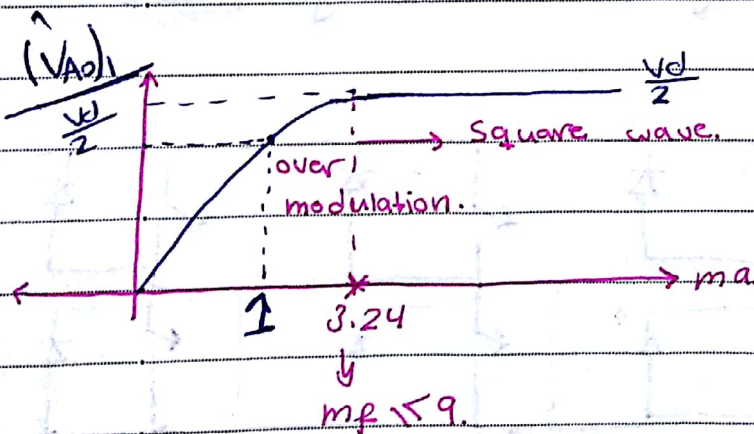 (V̂AO)1
Vd/2
Vd/2
Square wave.
over
modulation.
ma
1
3.24
mf ≤ 9.